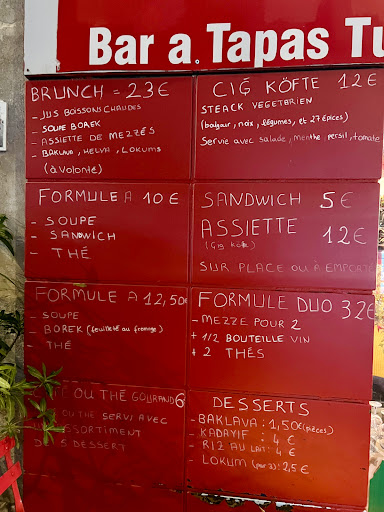 Bar a Tapas Tu
BRUNCH = 23€
- JUS BOISSONS CHAUDES
- SOUPE BOREK
- ASSIETTE DE MEZZÉS
- BAKLAVA, HELVA, LOKUMS
(à Volonté)
CIĞ KÖFTE 12€
STEACK VEGETARIEN
(bolgour, noix, légumes, et 27 épices)
Servie avec salade, menthe, persil, tomate
FORMULE A 10€
- SOUPE
- SANDWICH
- THÉ
SANDWICH 5€
ASSIETTE 12€
(Çıg köfte)
SUR PLACE OU À EMPORTE
FORMULE A 12,50€
- SOUPE
- BOREK (feuilleté au fromage)
- THÉ
FORMULE DUO 32€
- MEZZE POUR 2
+ 1/2 BOUTEILLE VIN
+ 2 THÉS
OU THÉ GOURAND 6
OU THÉ SERVI AVEC
ASSORTIMENT
DESSERT
DESSERTS
- BAKLAVA : 1,50€ (pièces)
- KADAYIF : 4€
- RIZ AU LAIT : 4€
LOKUM : 2,5€